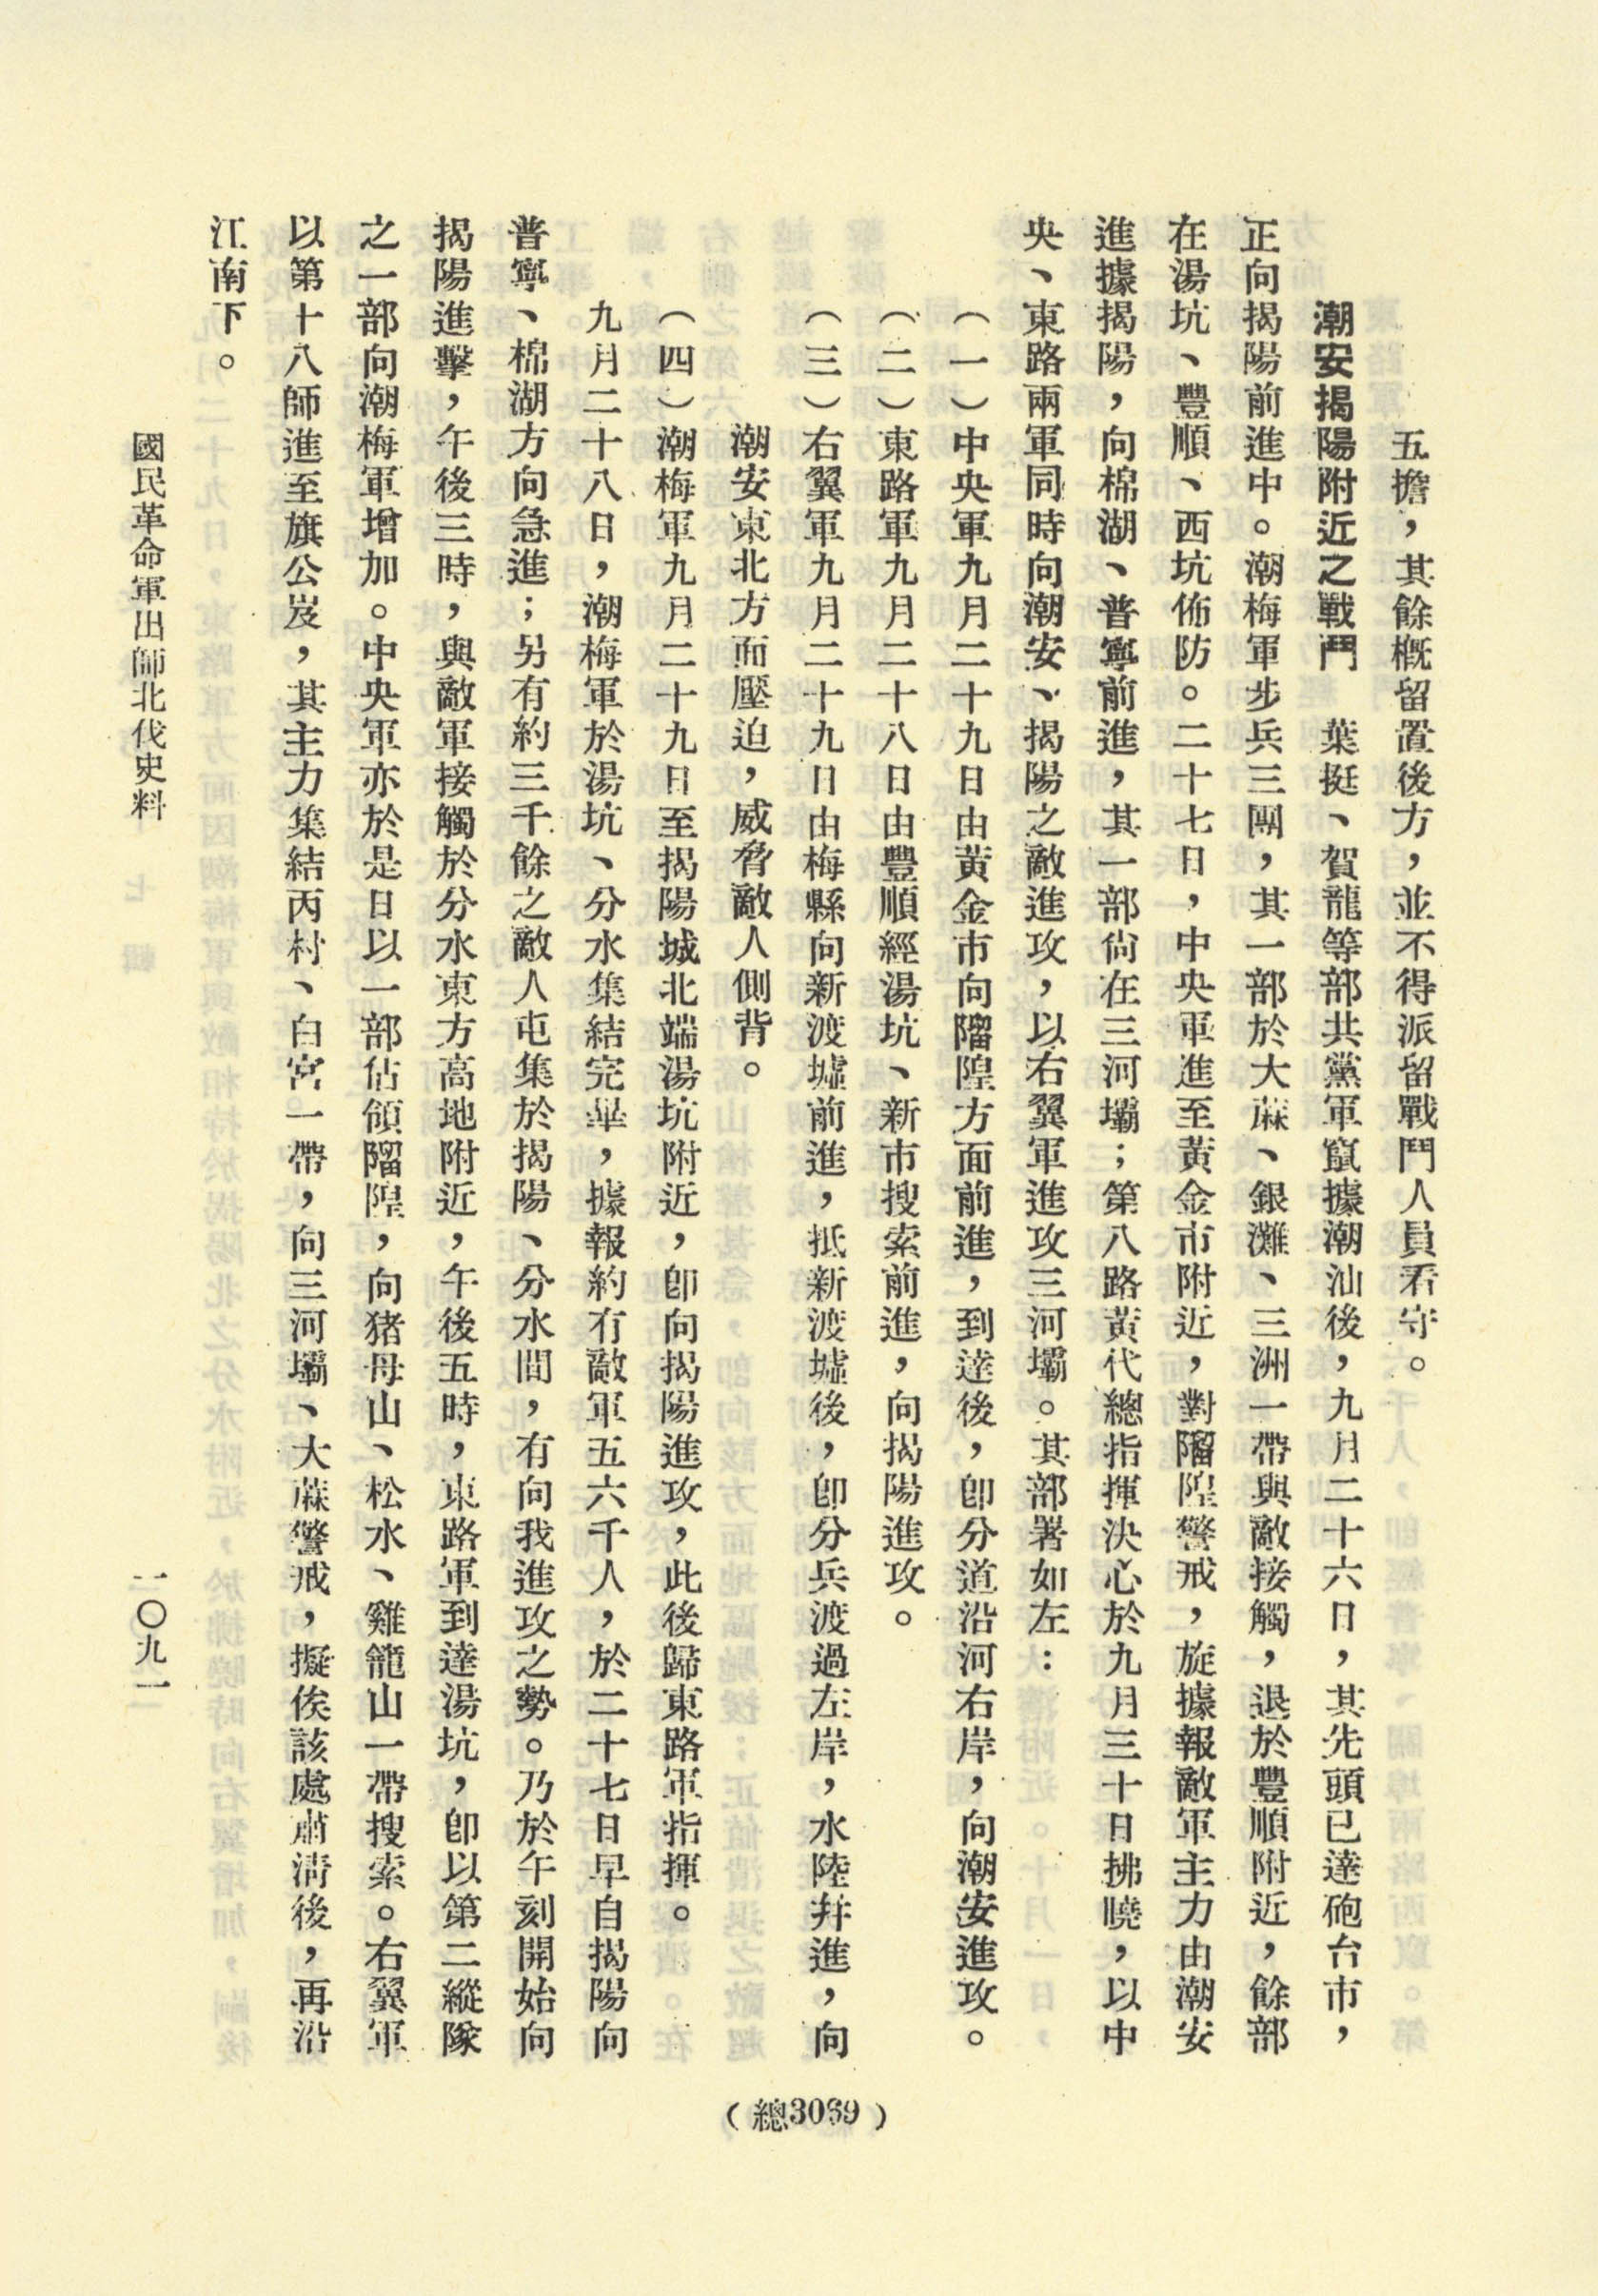 五擔，其餘概留置後方，並不得派留戰鬥人員看守。
潮安揭陽附近之戰鬥　葉挺、賀龍等部共黨軍竄據潮汕後，九月二十六日，其先頭已達砲台市，
正向揭陽前進中。潮梅軍步兵三團，其一部於大蔴、銀灘、三洲一帶與敵接觸，退於豐順附近，餘部
在湯坑、豐順、西坑佈防。二十七日，中央軍進至黃金市附近，對䧜隍警戒，旋據報敵軍主力由潮安
進據揭陽，向棉湖、普寧前進，其一部尙在三河壩；第八路黃代總指揮決心於九月三十日拂曉，以中
央、東路兩軍同時向潮安、揭陽之敵進攻，以右翼軍進攻三河壩。其部署如左：
（一）中央軍九月二十九日由黃金市向䧜隍方面前進，到達後，卽分道沿河右岸，向潮安進攻。
（二）東路軍九月二十八日由豐順經湯坑、新市搜索前進，向揭陽進攻。
（三）右翼軍九月二十九日由梅縣向新渡墟前進，抵新渡墟後，卽分兵渡過左岸，水陸幷進，向
潮安東北方面壓迫，威脅敵人側背。
（四）潮梅軍九月二十九日至揭陽城北端湯坑附近，卽向揭陽進攻，此後歸東路軍指揮。
九月二十八日，潮梅軍於湯坑、分水集結完畢，據報約有敵軍五六千人，於二十七日早自揭陽向
普寧、棉湖方向急進；另有約三千餘之敵人屯集於揭陽、分水間，有向我進攻之勢。乃於午刻開始向
揭陽進擊，午後三時，與敵軍接觸於分水東方高地附近，午後五時，東路軍到達湯坑，卽以第二縱隊
之一部向潮梅軍增加。中央軍亦於是日以一部佔領䧜隍，向猪母山、松水、雞籠山一帶搜索。右翼軍
以第十八師進至旗公岌，其主力集結丙村、白宮一帶，向三河壩、大蔴警戒，擬俟該處肅淸後，再沿
江南下。
國民革命軍出師北伐史料
一〇九一
（總3069）